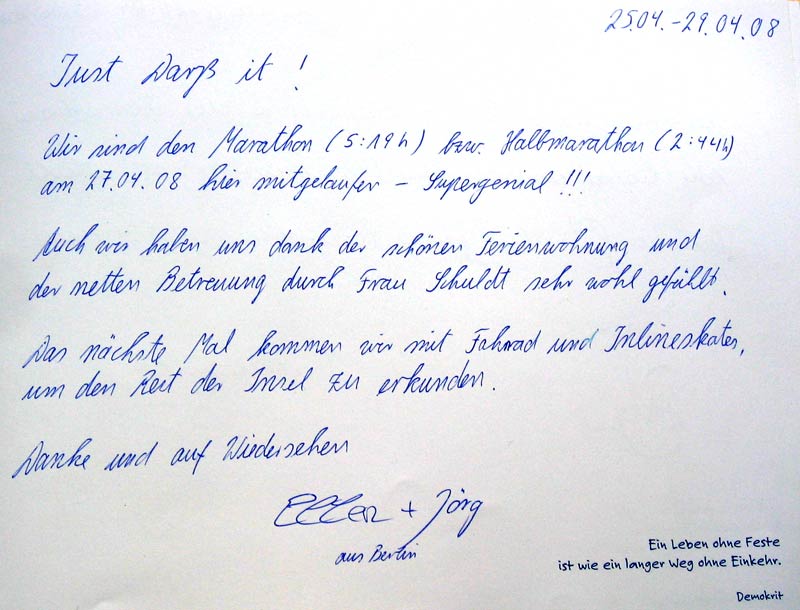 25.04.-29.04.08
Just Darß it!
Wir sind den Marathon (5:19h) bzw. Halbmarathon (2:44h)
am 27.04.08 hier mitgelaufen - Supergenial!!!
Auch wir haben uns dank der schönen Ferienwohnung und
der netten Betreuung durch Frau Schuldt sehr wohl gefühlt.
Das nächste Mal kommen wir mit Fahrrad und Inlineskates,
um den Rest der Insel zu erkunden.
Danke und auf Wiedersehen
Ellen + Jörg
aus Berlin
Ein Leben ohne Feste
ist wie ein langer Weg ohne Einkehr.
Demokrit